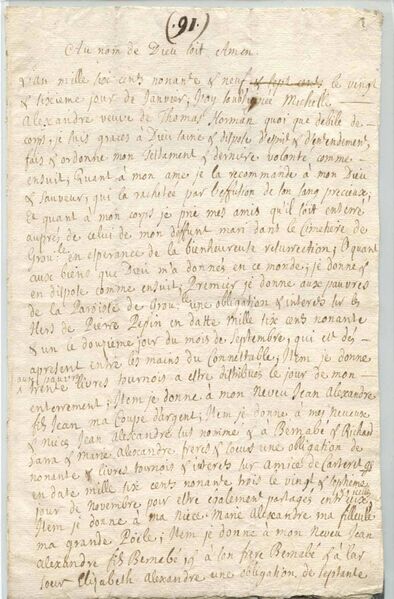 (91.)
Au nom de Dieu soit Amen.
L'an mille six cents nonante & neuf & sept cents le vingt
& sixieme jour de Janvier; Moy soubsignée Michelle
Alexandre veuve de Thomas Norman quoi que debile de
corps, je suis graces à Dieu saine & dispose d'esprit & d'entendement,
fais & ordonne mon Testament & derniere volonté comme
ensuit; Quant à mon ame je la recommande à mon Dieu
& Sauveur, qui l'a rachetée par l'effusion de son sang precieux;
Et quant à mon corps je prie mes amis qu'il soit enterré
auprés de celui de mon deffunt mari dans le Cimetiere de
Grouv: en esperance de la bienheureuse resurrection; & quant
aux biens que Dieu m'a donnés en ce monde; je donne &
en dispose comme ensuit; Premier je donne aux pauvres
de la Paroisse de Grouv: une obligation & interets sur les
Hers de Pierre Pepin en datte mille six cents nonante
& un le douzieme jour du mois de Septembre, qui est dés
apresent entre les mains du Connettable; Item je donne
aux pauvres
trente livres tournois a estre distribués le jour de mon
enterrement; Item je donne à mon Neveu Jean Alexandre
fs Jean ma Coupe d'argent; Item je donne à mes neveux
& niece Jean Alexandre sus nommé & à Bernabé & Richard
Sara & Marie Alexandre freres & soeurs une obligation de
nonante & livres tournois & interets sur Amice de Carteret
en date mille six cents nonante trois le vingt &
jour de Novembre pour estre également partagés entr'eux
Item je donne à ma Niece Marie Alexandre ma filleulle
ma grande Poële; Item je donne à mon Neveu Jean
Alexandre fs Bernabé & à son frere Bernabé & à sa
soeur Elizabeth Alexandre une obligation de septante